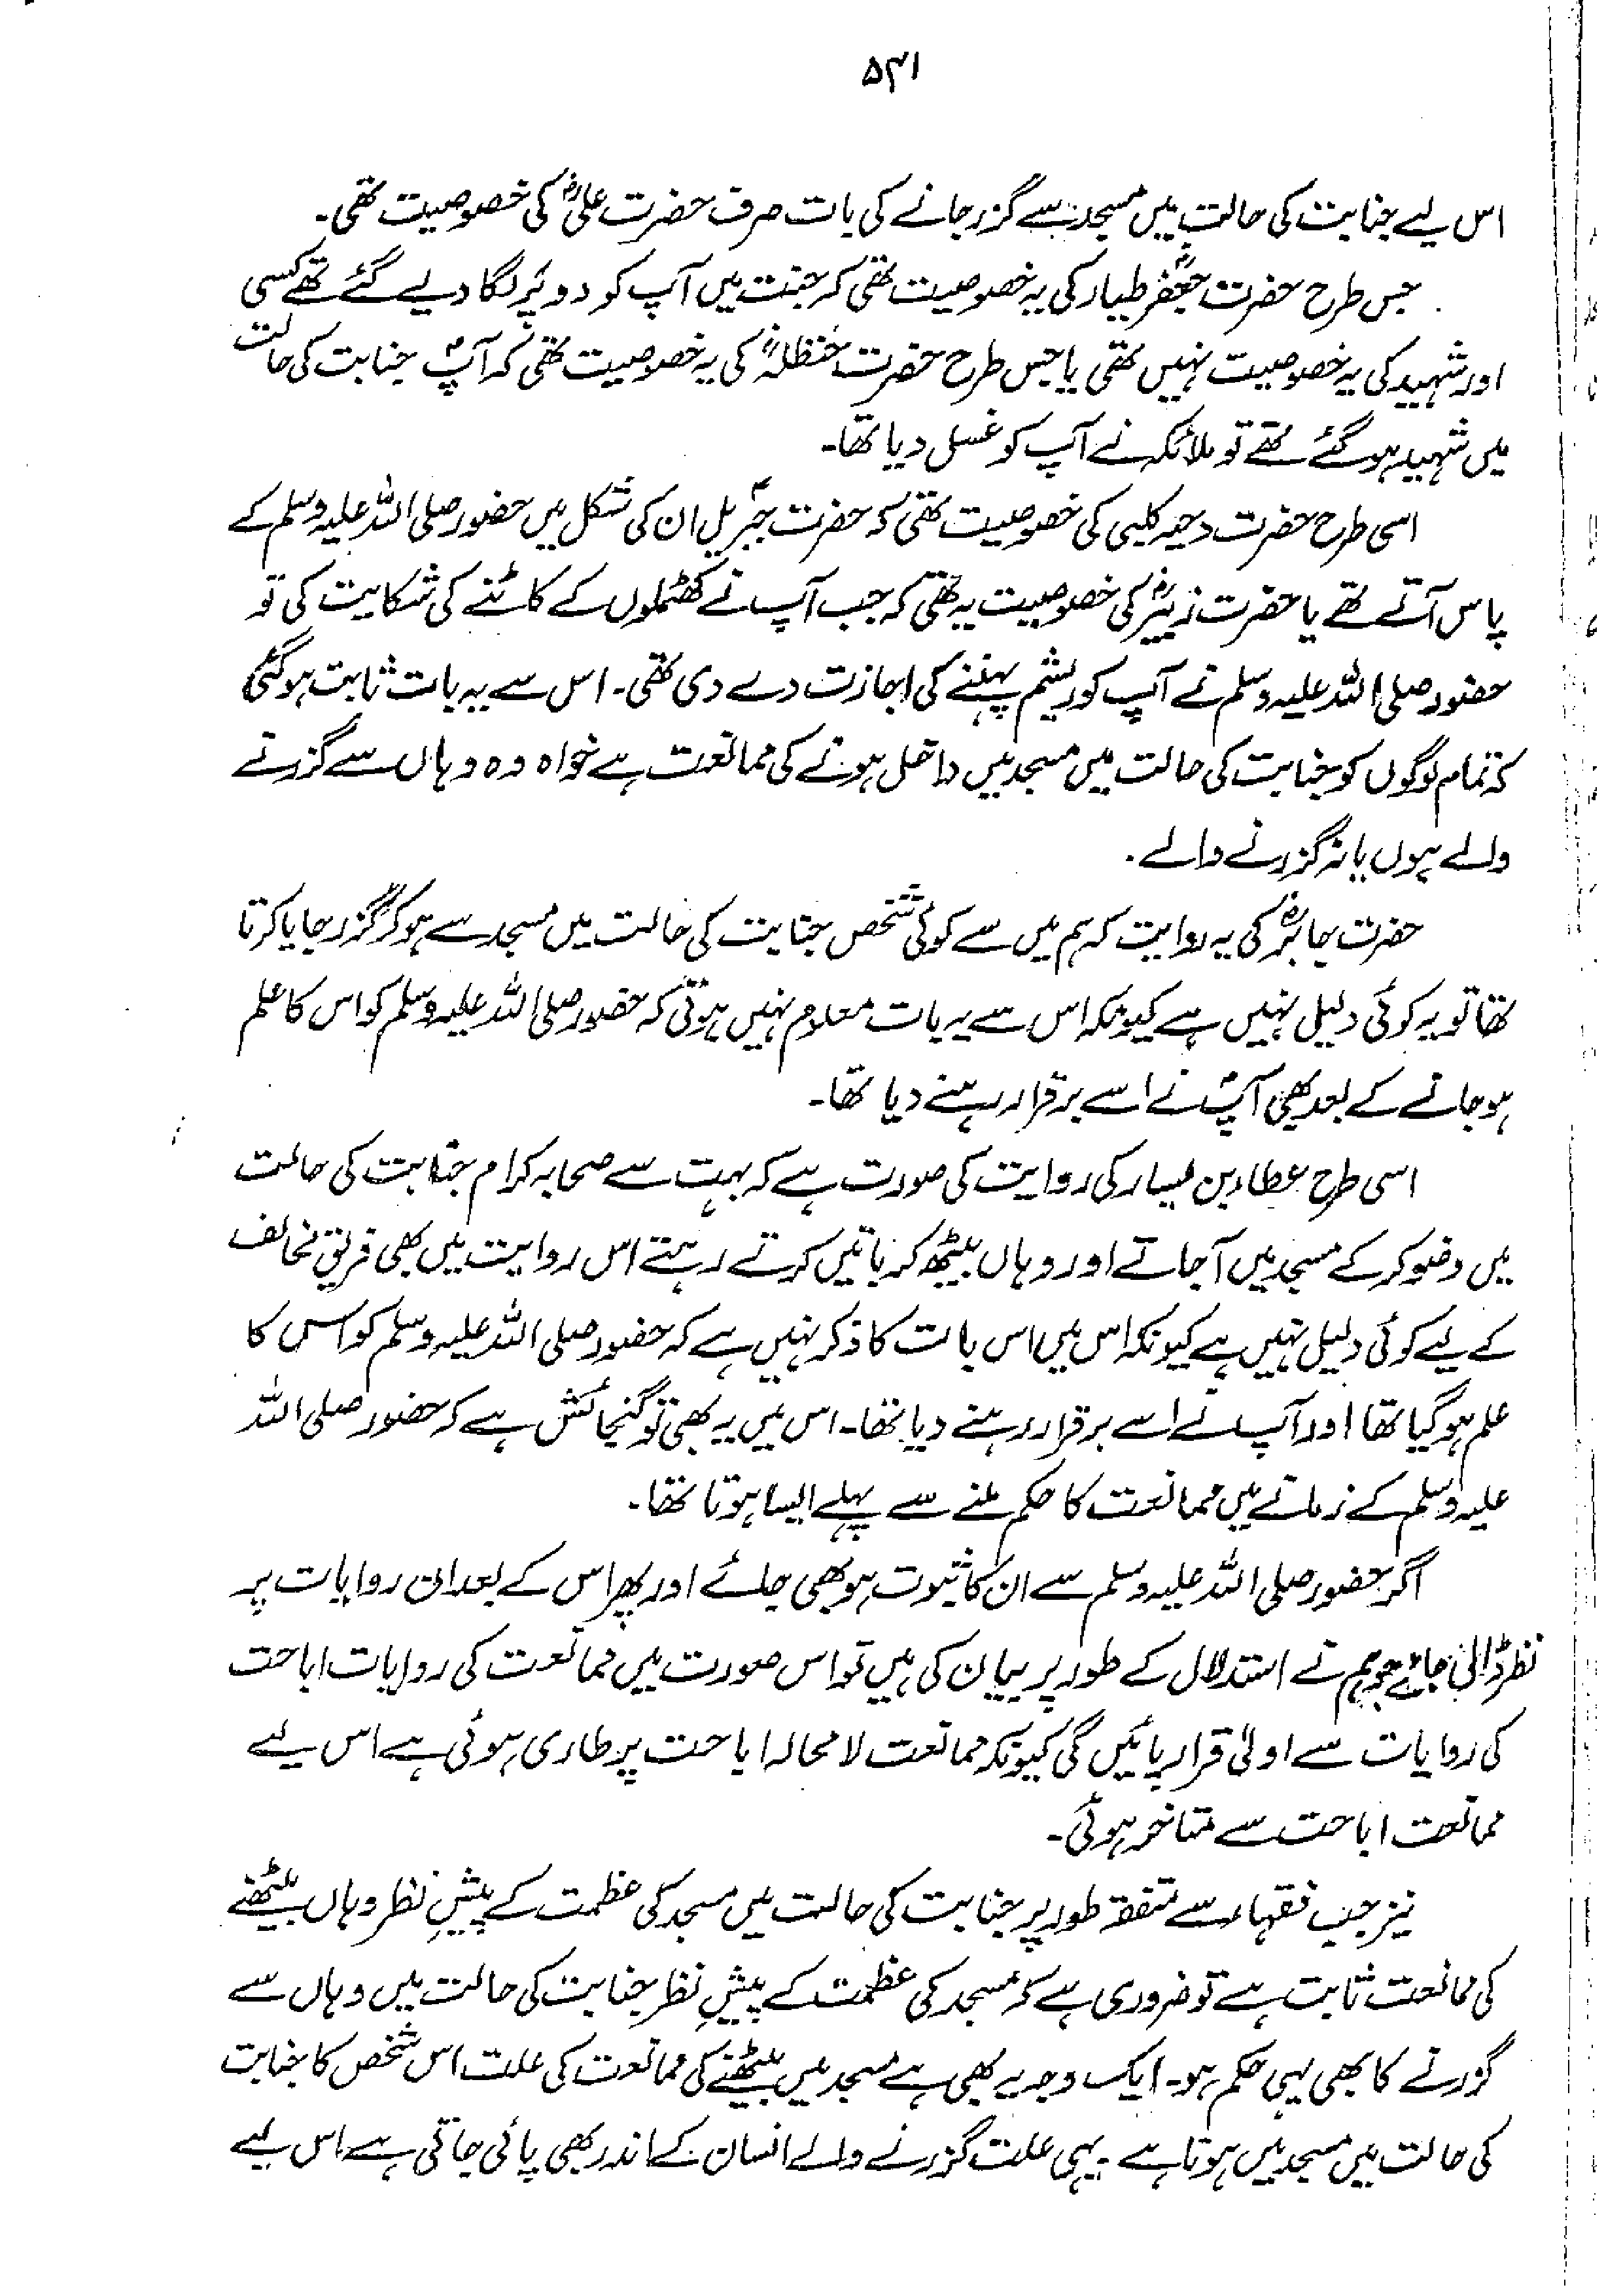 ۵۴۱
اس لیے جنابت کی حالت میں مسجد سے گزر جانے کی بات صرف حضرت علیؓ کی خصوصیت تھی۔
جس طرح حضرت جعفرؓ طیار کی یہ خصوصیت تھی کہ جنت میں آپ کو دو پَر لگا دیے گئے تھے کسی
اور شہید کی یہ خصوصیت نہیں تھی یا جس طرح حضرت حنظلہؓ کی یہ خصوصیت تھی کہ آپؓ جنابت کی حالت
میں شہید ہو گئے تھے تو ملائکہ نے آپ کو غسل دیا تھا۔
اسی طرح حضرت دحیہ کلبی کی خصوصیت تھی کہ حضرت جبریلؑ ان کی شکل میں حضور صلی اللہ علیہ وسلم کے
پاس آتے تھے یا حضرت زبیرؓ کی خصوصیت یہ تھی کہ جب آپ نے کھٹملوں کے کاٹنے کی شکایت کی تو
حضور صلی اللہ علیہ وسلم نے آپ کو ریشم پہننے کی اجازت دے دی تھی۔ اس سے یہ بات ثابت ہو گئی
کہ تمام لوگوں کو جنابت کی حالت میں مسجد میں داخل ہونے کی ممانعت ہے خواہ وہ وہاں سے گزرنے
والے ہوں یا نہ گزرنے والے۔
حضرت جابرؓ کی یہ روایت کہ ہم میں سے کوئی شخص جنابت کی حالت میں مسجد سے ہو کر گزر جایا کرتا
تھا تو یہ کوئی دلیل نہیں ہے کیونکہ اس سے یہ بات معلوم نہیں ہوتی کہ حضور صلی اللہ علیہ وسلم کو اس کا علم
ہو جانے کے بعد بھی آپؐ نے اسے برقرار رہنے دیا تھا۔
اسی طرح عطاء بن یسار کی روایت کی صورت ہے کہ بہت سے صحابہ کرام جنابت کی حالت
میں وضو کر کے مسجد میں آجاتے اور وہاں بیٹھ کر باتیں کرتے رہتے اس روایت میں بھی فریق مخالف
کے لیے کوئی دلیل نہیں ہے کیونکہ اس میں اس بات کا ذکر نہیں ہے کہ حضور صلی اللہ علیہ وسلم کو اس کا
علم ہو گیا تھا اور آپ نے اسے برقرار رہنے دیا تھا۔ اس میں یہ بھی تو گنجائش ہے کہ حضور صلی اللہ
علیہ وسلم کے زمانے میں ممانعت کا حکم ملنے سے پہلے ایسا ہوتا تھا۔
اگر حضور صلی اللہ علیہ وسلم سے ان کا ثبوت ہو بھی جائے اور پھر اس کے بعد ان روایات پر
نظر ڈالی جائے جو ہم نے استدلال کے طور پر بیان کی ہیں تو اس صورت میں ممانعت کی روایات اباحت
کی روایات سے اولیٰ قرار پائیں گی کیونکہ ممانعت لا محالہ اباحت پر طاری ہوئی ہے اس لیے
ممانعت اباحت سے متاخر ہوئی۔
نیز جب فقہاء سے متفقہ طور پر جنابت کی حالت میں مسجد کی عظمت کے پیشِ نظر وہاں بیٹھنے
کی ممانعت ثابت ہے تو ضروری ہے کہ مسجد کی عظمت کے پیشِ نظر جنابت کی حالت میں وہاں سے
گزرنے کا بھی یہی حکم ہو۔ ایک وجہ یہ بھی ہے مسجد میں بیٹھنے کی ممانعت کی علت اس شخص کا جنابت
کی حالت میں مسجد میں ہوتا ہے۔ یہی علت گزرنے والے انسان کے اندر بھی پائی جاتی ہے اس لیے